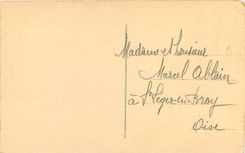 Madame et Monsieur
Marcel Ablain
à St Leger-en-Bray
Oise